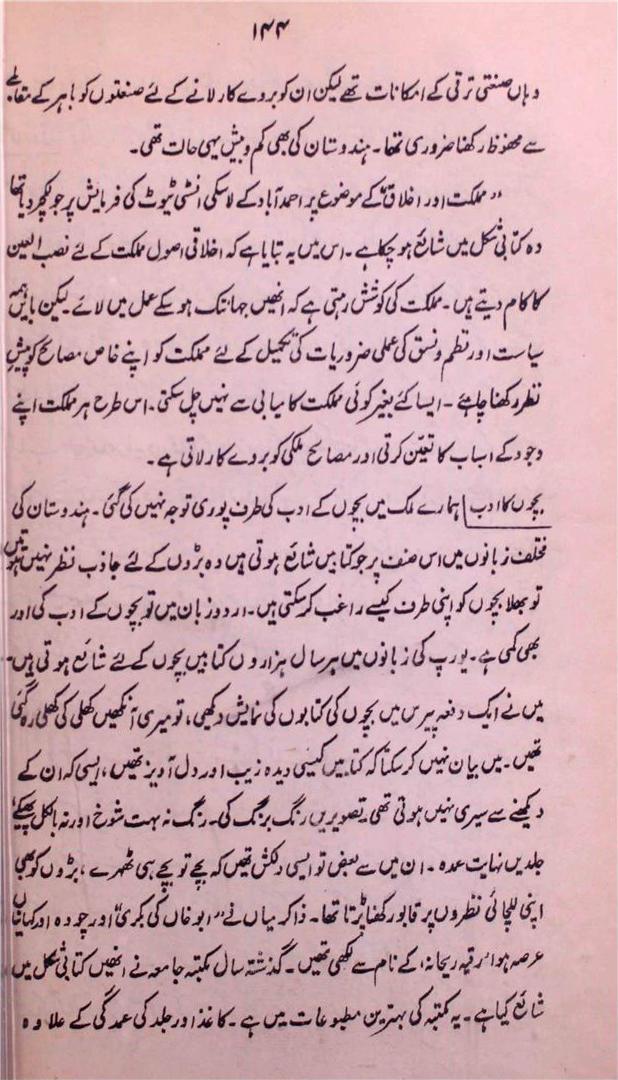 ۱۴۴
وہاں صنعتی ترقی کے امکانات تھے لیکن ان کو بروے کار لانے کے لئے صنعتوں کو باہر کے مقابلے
سے محفوظ رکھنا ضروری تھا۔ ہندوستان کی بھی کم و بیش یہی حالت تھی۔
" مملکت اور اخلاق" کے موضوع پر احمد آباد کے لاسکی انسٹی ٹیوٹ کی فرمایش پر جو لکچر دیا تھا
وہ کتابی شکل میں شائع ہو چکا ہے۔ اس میں یہ بتایا ہے کہ اخلاقی اصول مملکت کے لئے نصب العین
کا کام دیتے ہیں۔ مملکت کی کوشش رہتی ہے کہ انھیں جہانتک ہو سکے عمل میں لائے لیکن بایں ہمہ
سیاست اور نظم و نسق کی عملی ضروریات کی تکمیل کے لئے مملکت کو اپنے خاص مصالح کو پیشِ
نظر رکھنا چاہئے۔ ایسا کئے بغیر کوئی مملکت کامیابی سے نہیں چل سکتی۔ اس طرح ہر مملکت اپنے
وجود کے اسباب کا تعیّن کرتی اور مصالح ملکی کو بروے کار لاتی ہے۔
بچوں کا ادب | ہمارے ملک میں بچوں کے ادب کی طرف پوری توجہ نہیں کی گئی۔ ہندوستان کی
مختلف زبانوں میں اس صنف پر جو کتابیں شائع ہوتی ہیں وہ بڑوں کے لئے جاذب نظر نہیں ہوتیں
تو بھلا بچوں کو اپنی طرف کیسے راغب کر سکتی ہیں۔ اردو زبان میں تو بچوں کے ادب کی اور
بھی کمی ہے۔ یورپ کی زبانوں میں ہر سال ہزاروں کتابیں بچوں کے لئے شائع ہوتی ہیں۔
میں نے ایک دفعہ پیرس میں بچوں کی کتابوں کی نمایش دیکھی، تو میری آنکھیں کھلی کی کھلی رہ گئی
تھیں۔ میں بیان نہیں کر سکتا کہ کتابیں کیسی دیدہ زیب اور دل آویز تھیں، ایسی کہ ان کے
دیکھنے سے سیری نہیں ہوتی تھی۔ تصویریں رنگ برنگ کی۔ رنگ نہ بہت شوخ اور نہ بالکل پھیکے
جلدیں نہایت عمدہ۔ ان میں سے بعض تو ایسی دلکش تھیں کہ بچے تو بچے ہی ٹھہرے، بڑوں کو بھی
اپنی للچائی نظروں پر قابو رکھنا پڑتا تھا۔ ذاکر میاں نے "ابو خاں کی بکری" اور چودہ اور کہانیاں
عرصہ ہوا 'رقیہ ریحانہ' کے نام سے لکھی تھیں۔ گذشتہ سال مکتبہ جامعہ نے انھیں کتابی شکل میں
شائع کیا ہے۔ یہ مکتبہ کی بہترین مطبوعات میں ہے۔ کاغذ اور جلد کی عمدگی کے علاوہ